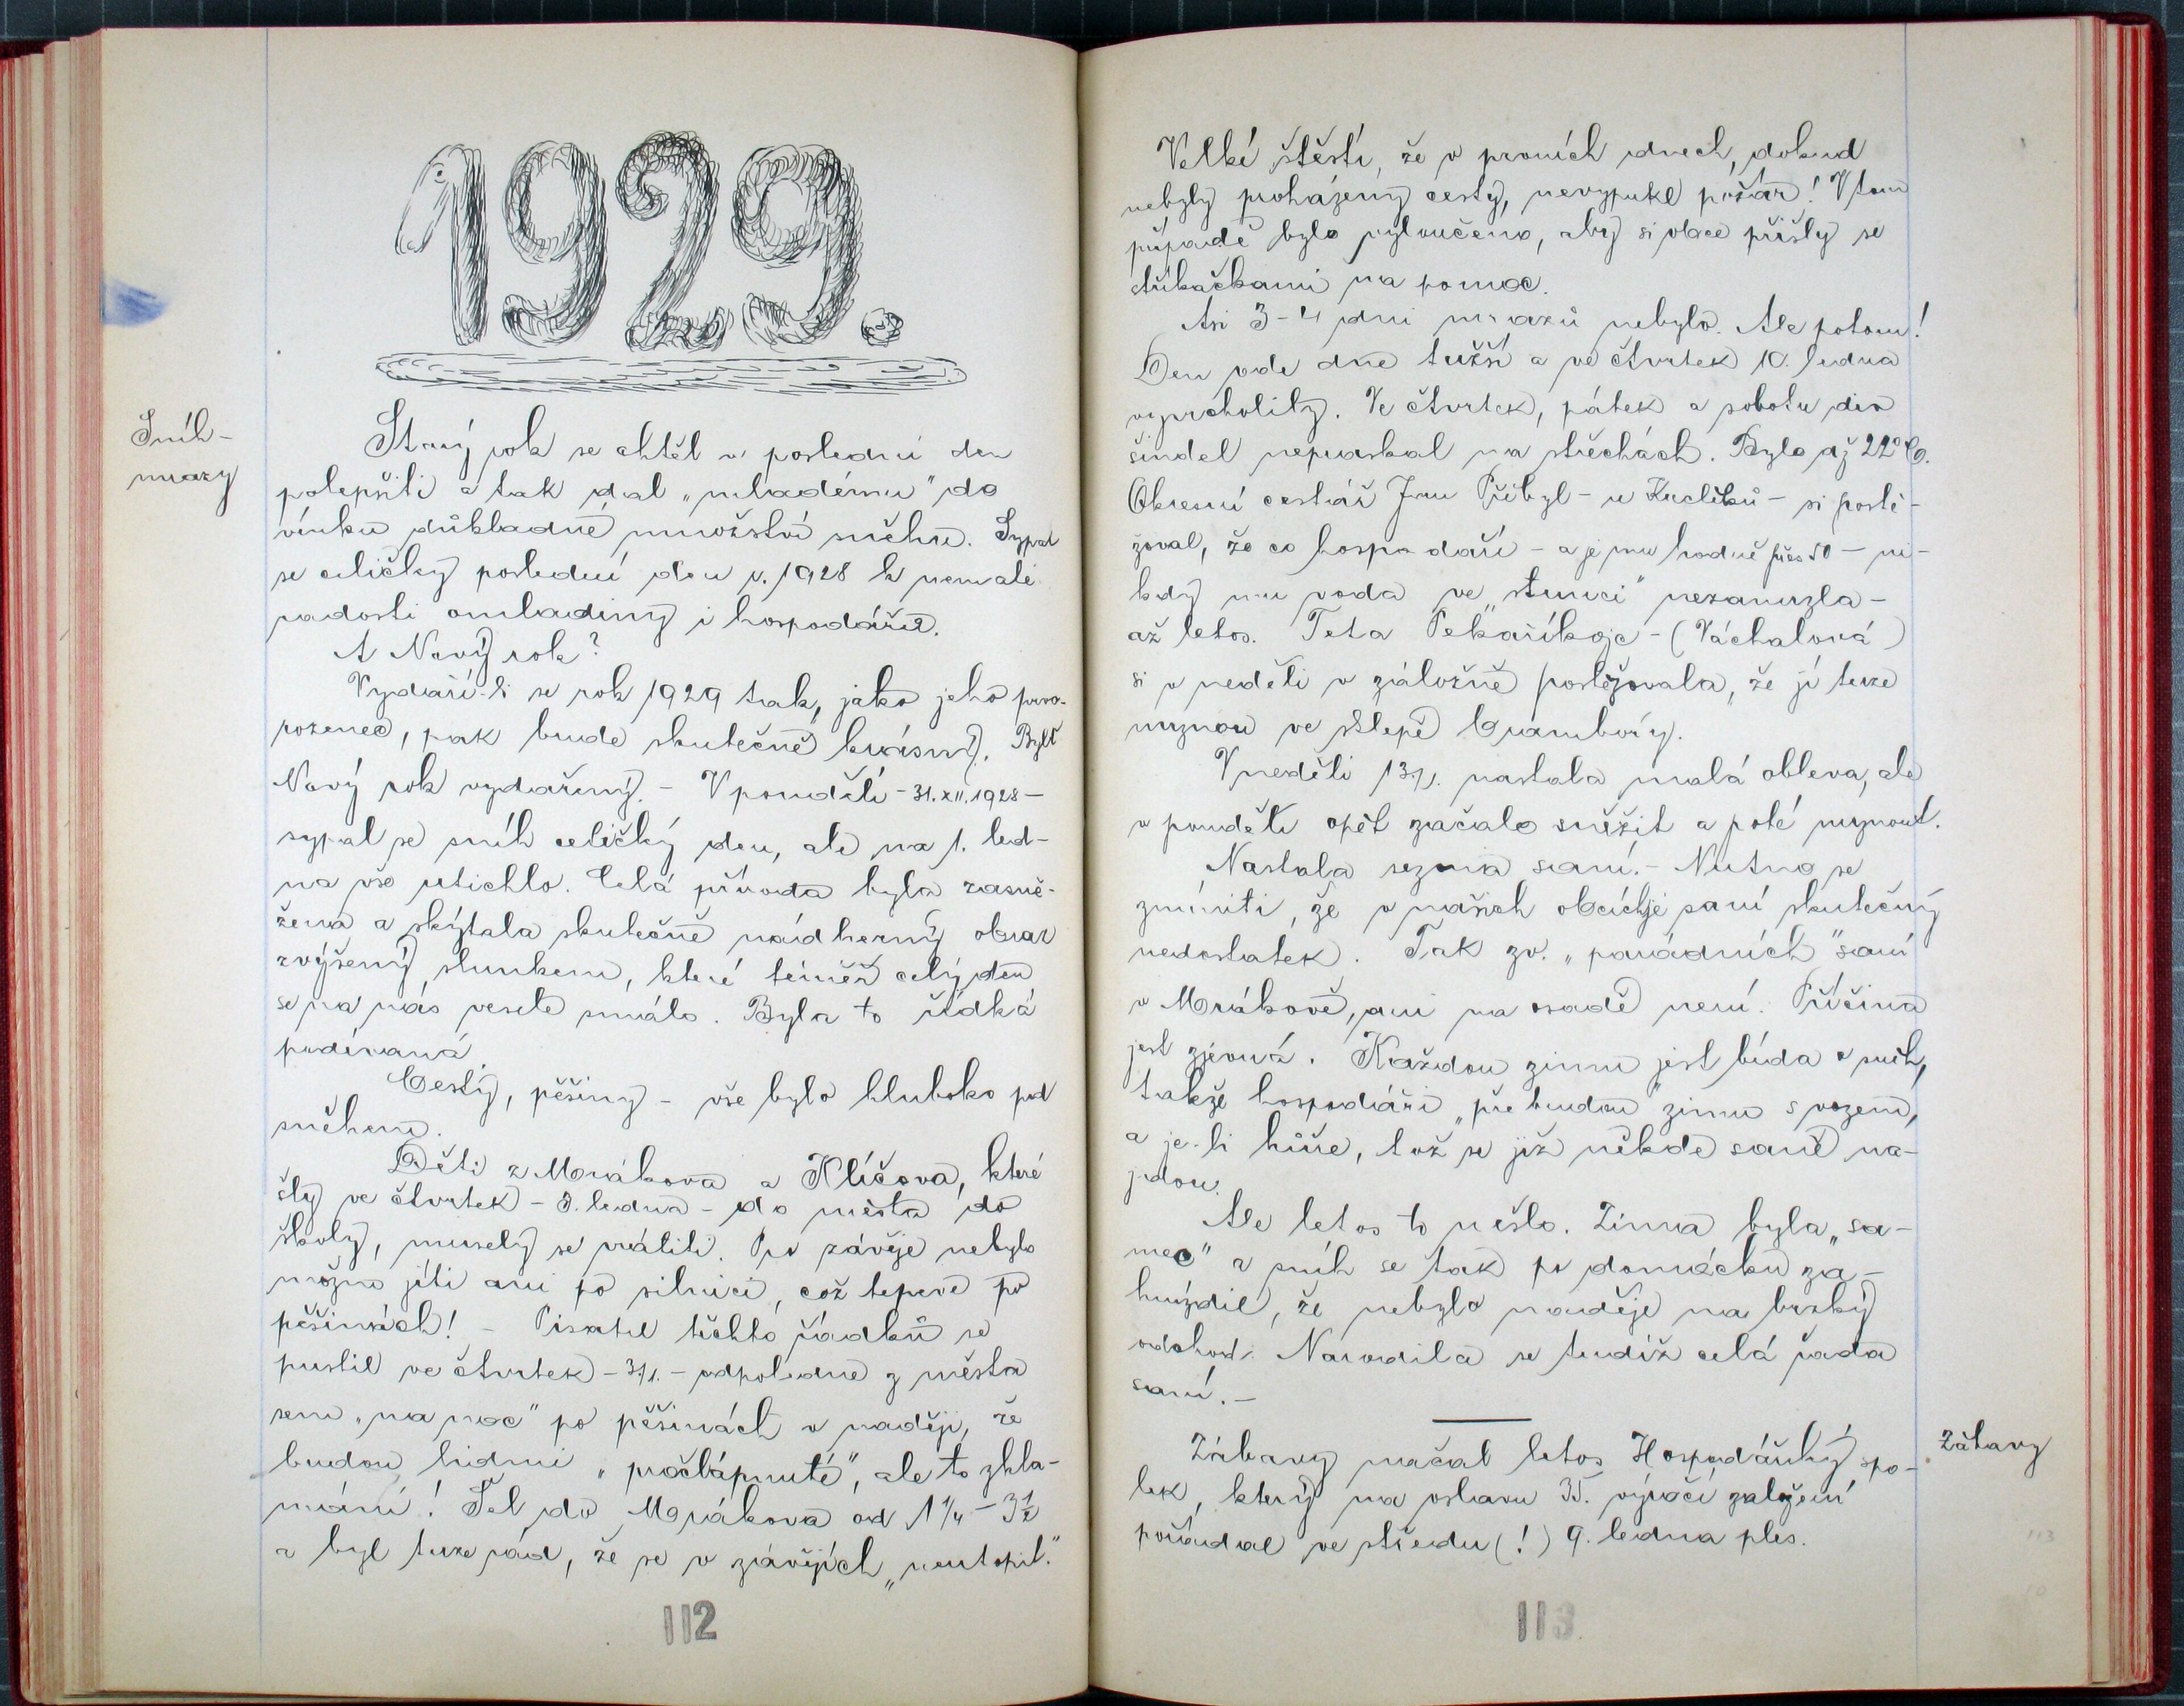 1929.
Sníh-
mrazy
Starý rok se chtěl v poslední den
polepšiti a tak dal „mladému" do
vínku důkladné množství sněhu. Sypal
se celičký poslední den r. 1928 k nemalé
radosti omladiny i hospodářů.
A Nový rok?
Vydaří-li se rok 1929 tak, jako jeho prvo-
rozenec, pak bude skutečně krásný. Bylť
Nový rok vydařený. - V pondělí - 31.XII.1928 -
sypal se sníh celičký den, ale na 1. led-
na vše utichlo. Celá příroda byla zasně-
žena a skýtala skutečně nádherný obraz
zvýšený sluncem, které téměř celý den
se na nás vesele smálo. Byla to řídká
podívaná.
Cesty, pěšiny - vše bylo hluboko pod
sněhem.
Děti z Mrákova a Klíčova, které
šly ve čtvrtek - 3. ledna - do města do
školy, musely se vrátiti. Pro závěje nebylo
možno jíti ani po silnici, což teprve po
pěšinách! - Pisatel těchto řádků se
pustil ve čtvrtek - 3/1. - odpoledne z města
sem „na noc" po pěšinách v naději, že
budou lidmi „prošlápnuté", ale to zkla-
mání! Šel do Mrákova od 1 1/4 - 3 1/2
a byl tuze rád, že se v závějích „neutopil."
112
Velké štěstí, že v prvních dnech, dokud
nebyly proházeny cesty, nevypukl požár! V tom
případě bylo vyloučeno, aby si obce přišly se
stříkačkami na pomoc.
Asi 3-4 dni mrazů nebylo. Ale potom!
Den ode dne tužší a ve čtvrtek 10. ledna
vyvrcholily. Ve čtvrtek, pátek a sobotu div
šindel nepraskal na střechách. Bylo až 22° C.
Okresní cestář Jan Přibyl - u Kuclíků - si postě-
žoval, že co hospodaří - a je mu hodně přes 50 - ni-
kdy mu voda ve „stunci" nezamrzla -
až letos. Teta Pekaříkojc - (Váchalová)
si v neděli v záložně postěžovala, že jí tuze
mrznou ve sklepě brambory.
V neděli 13/1. nastala malá obleva, ale
v pondělí opět začalo sněžit a poté mrznout.
Nastala sezona saní. - Nutno se
zmíniti, že v našich obcích je saní skutečný
nedostatek. Tak zv. „parádních" saní
v Mrákově, ani na osadě není. Příčina
jest zjevná. Každou zimu jest bída o sníh,
takže hospodáři „přebudou" zimu s vozem,
a je-li hůře, tož se již někde saně na-
jdou.
Ale letos to nešlo. Zima byla „sa-
mec" a sníh se tak po domácku za-
hnízdil, že nebylo naděje na brzký
odchod. Narodila se tudíž celá řada
saní. -
Zábavy
Zábavy načal letos Hospodářský spo-
lek, který na oslavu 35. výročí založení
pořádal ve středu (!) 9. ledna ples.
113.